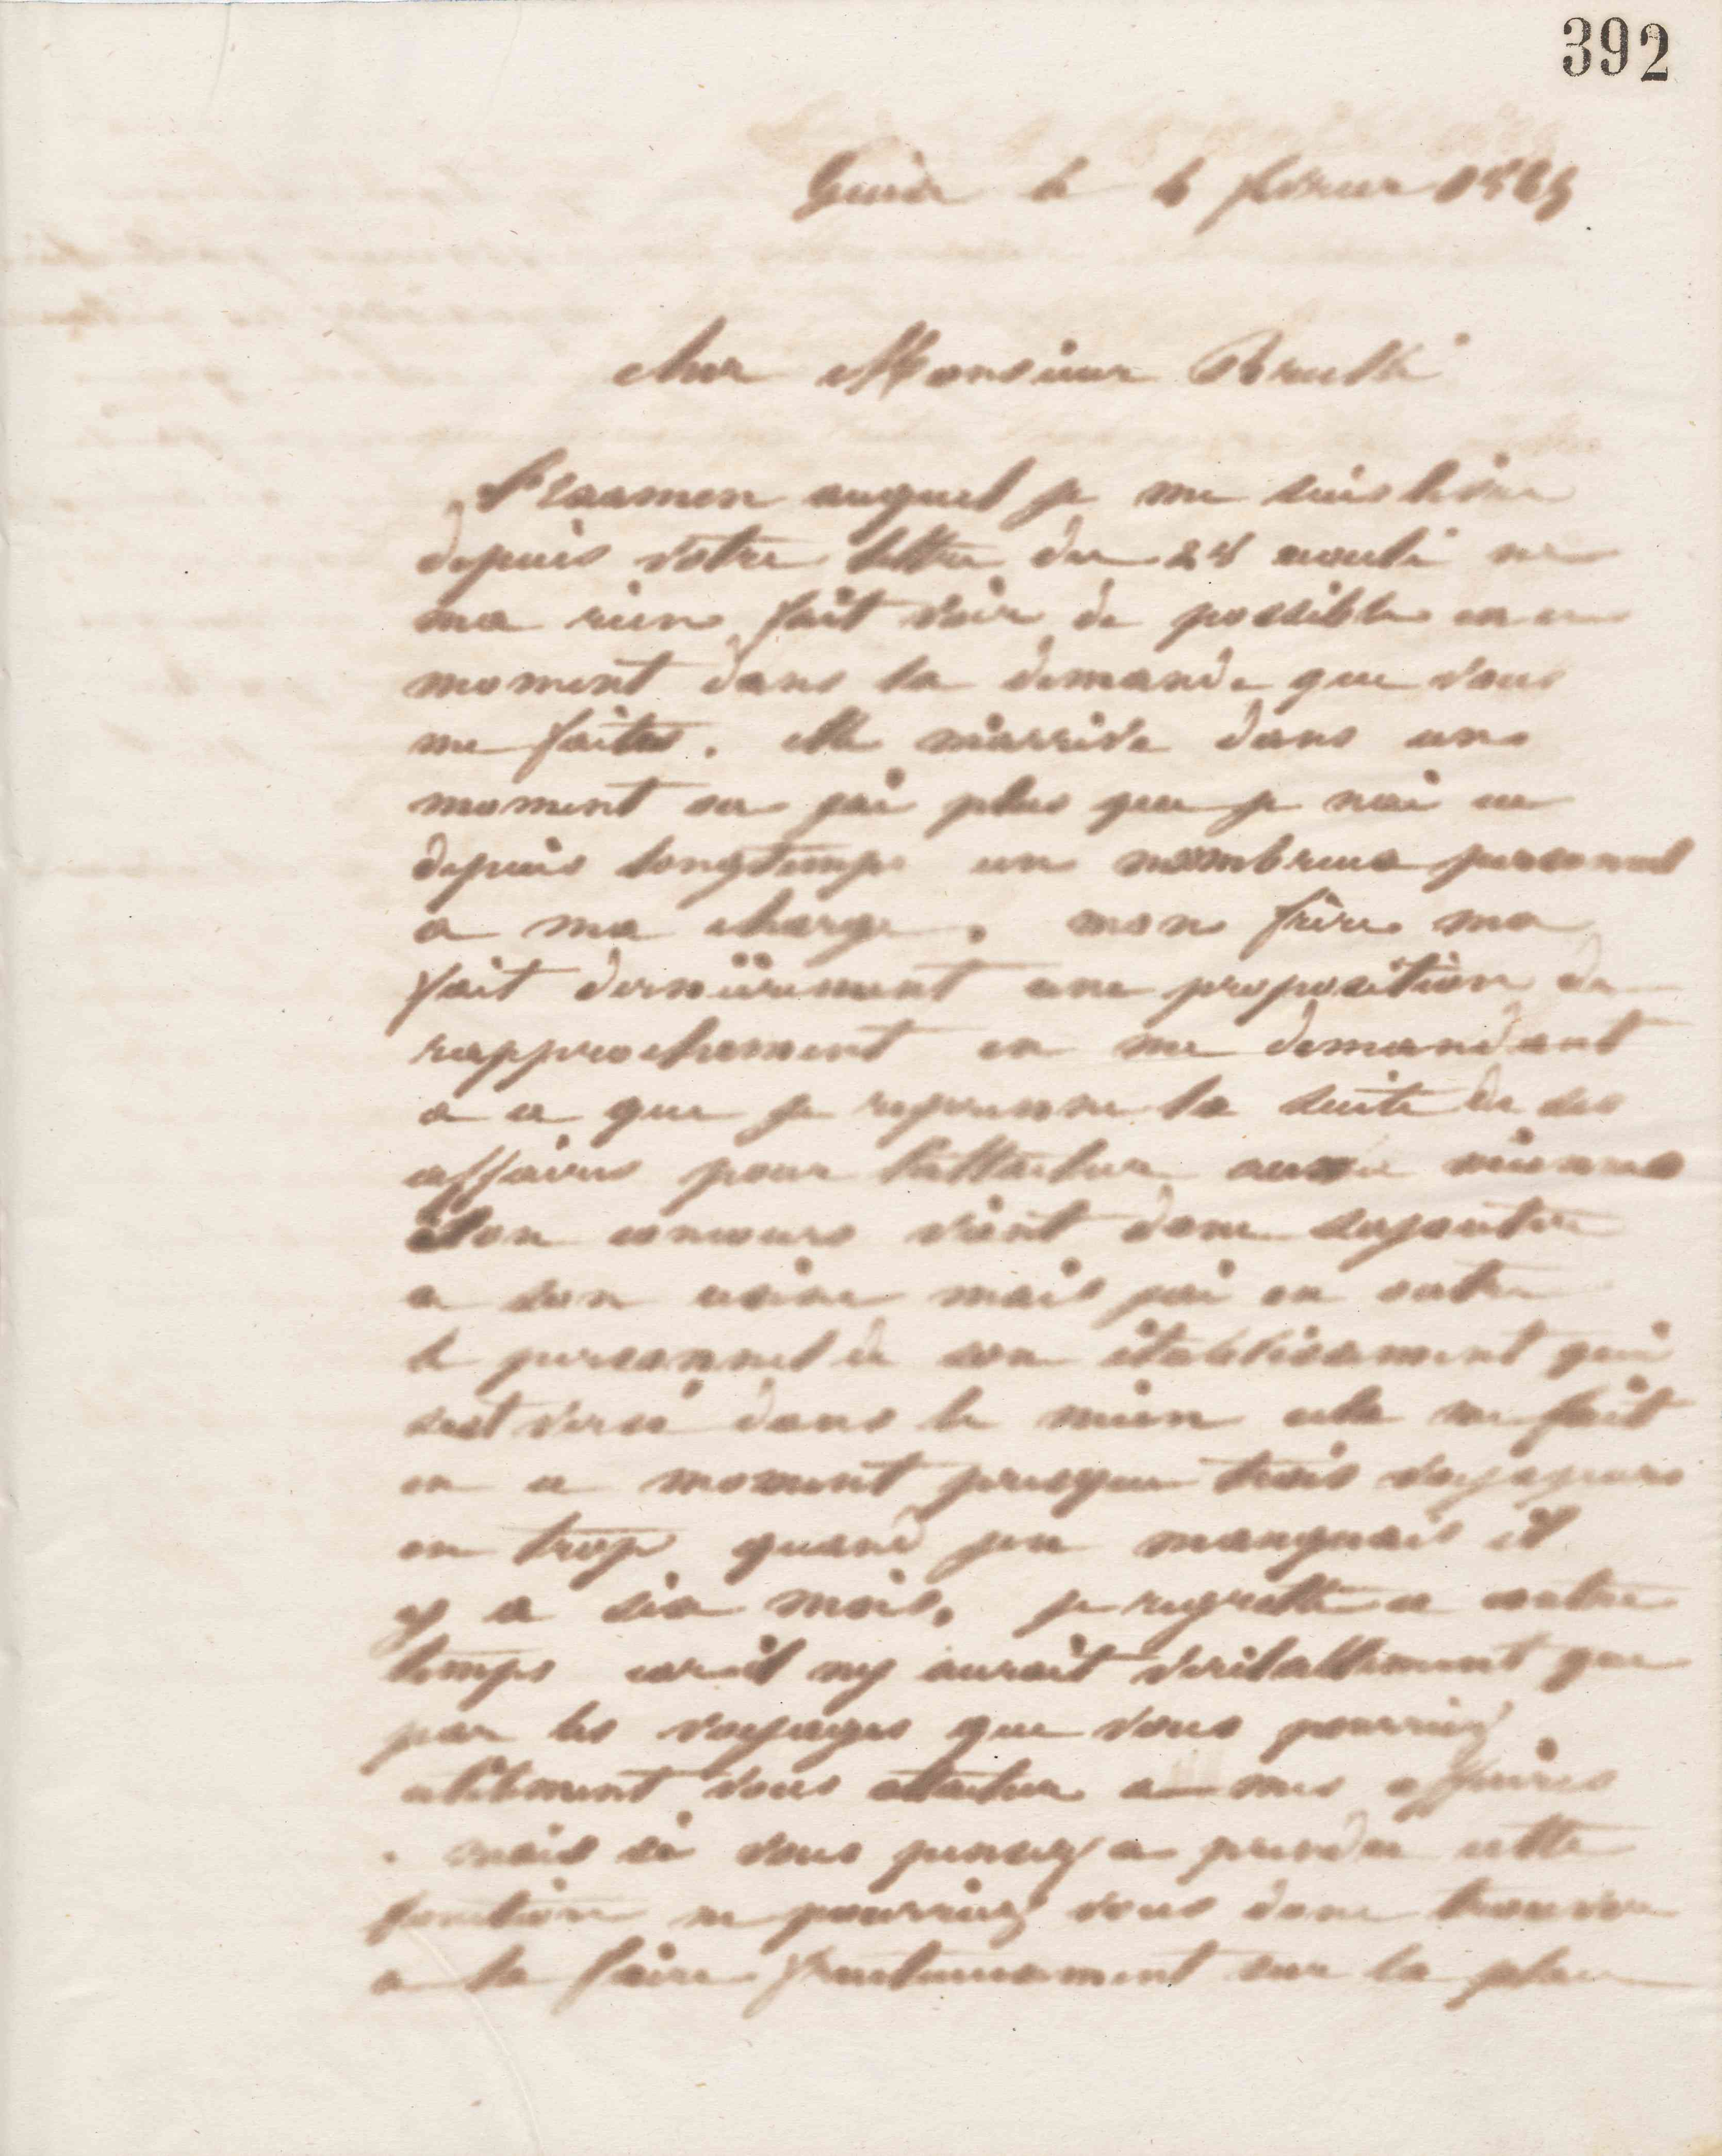 392
Guise le 4 février 1865
cher Monsieur
L'examen auquel je me suis livré
depuis votre lettre du 28 écoulé ne
ma rien fait voir de possible en ce
moment dans la demande que vous
me faites. elle m'arrive dans un
moment ou j'ai plus que je n'ai eu
depuis longtemps un nombreux personnel
a ma charge. mon frère ma
fait dernièrement une proposition de
rapprochement en me demandant
a ce que je reprenne la suite de ses
affaires pour l'attacher aux miennes
son concours vient donc s'ajouter
a son usine mais j'ai en outre
le personnel de son établissement qui
s'est versé dans le mien cela me fait
en ce moment presque trois voyageurs
en trop quand j'en manquais il
y a six mois. je regrette ce contre
temps car il n'y aurait véritablement que
par les voyages que vous pourriez
utilement vous attacher a mes affaires
. mais si vous pensez a prendre cette
fonction ne pourriez vous donc trouver
a la faire fructueusement sur la place